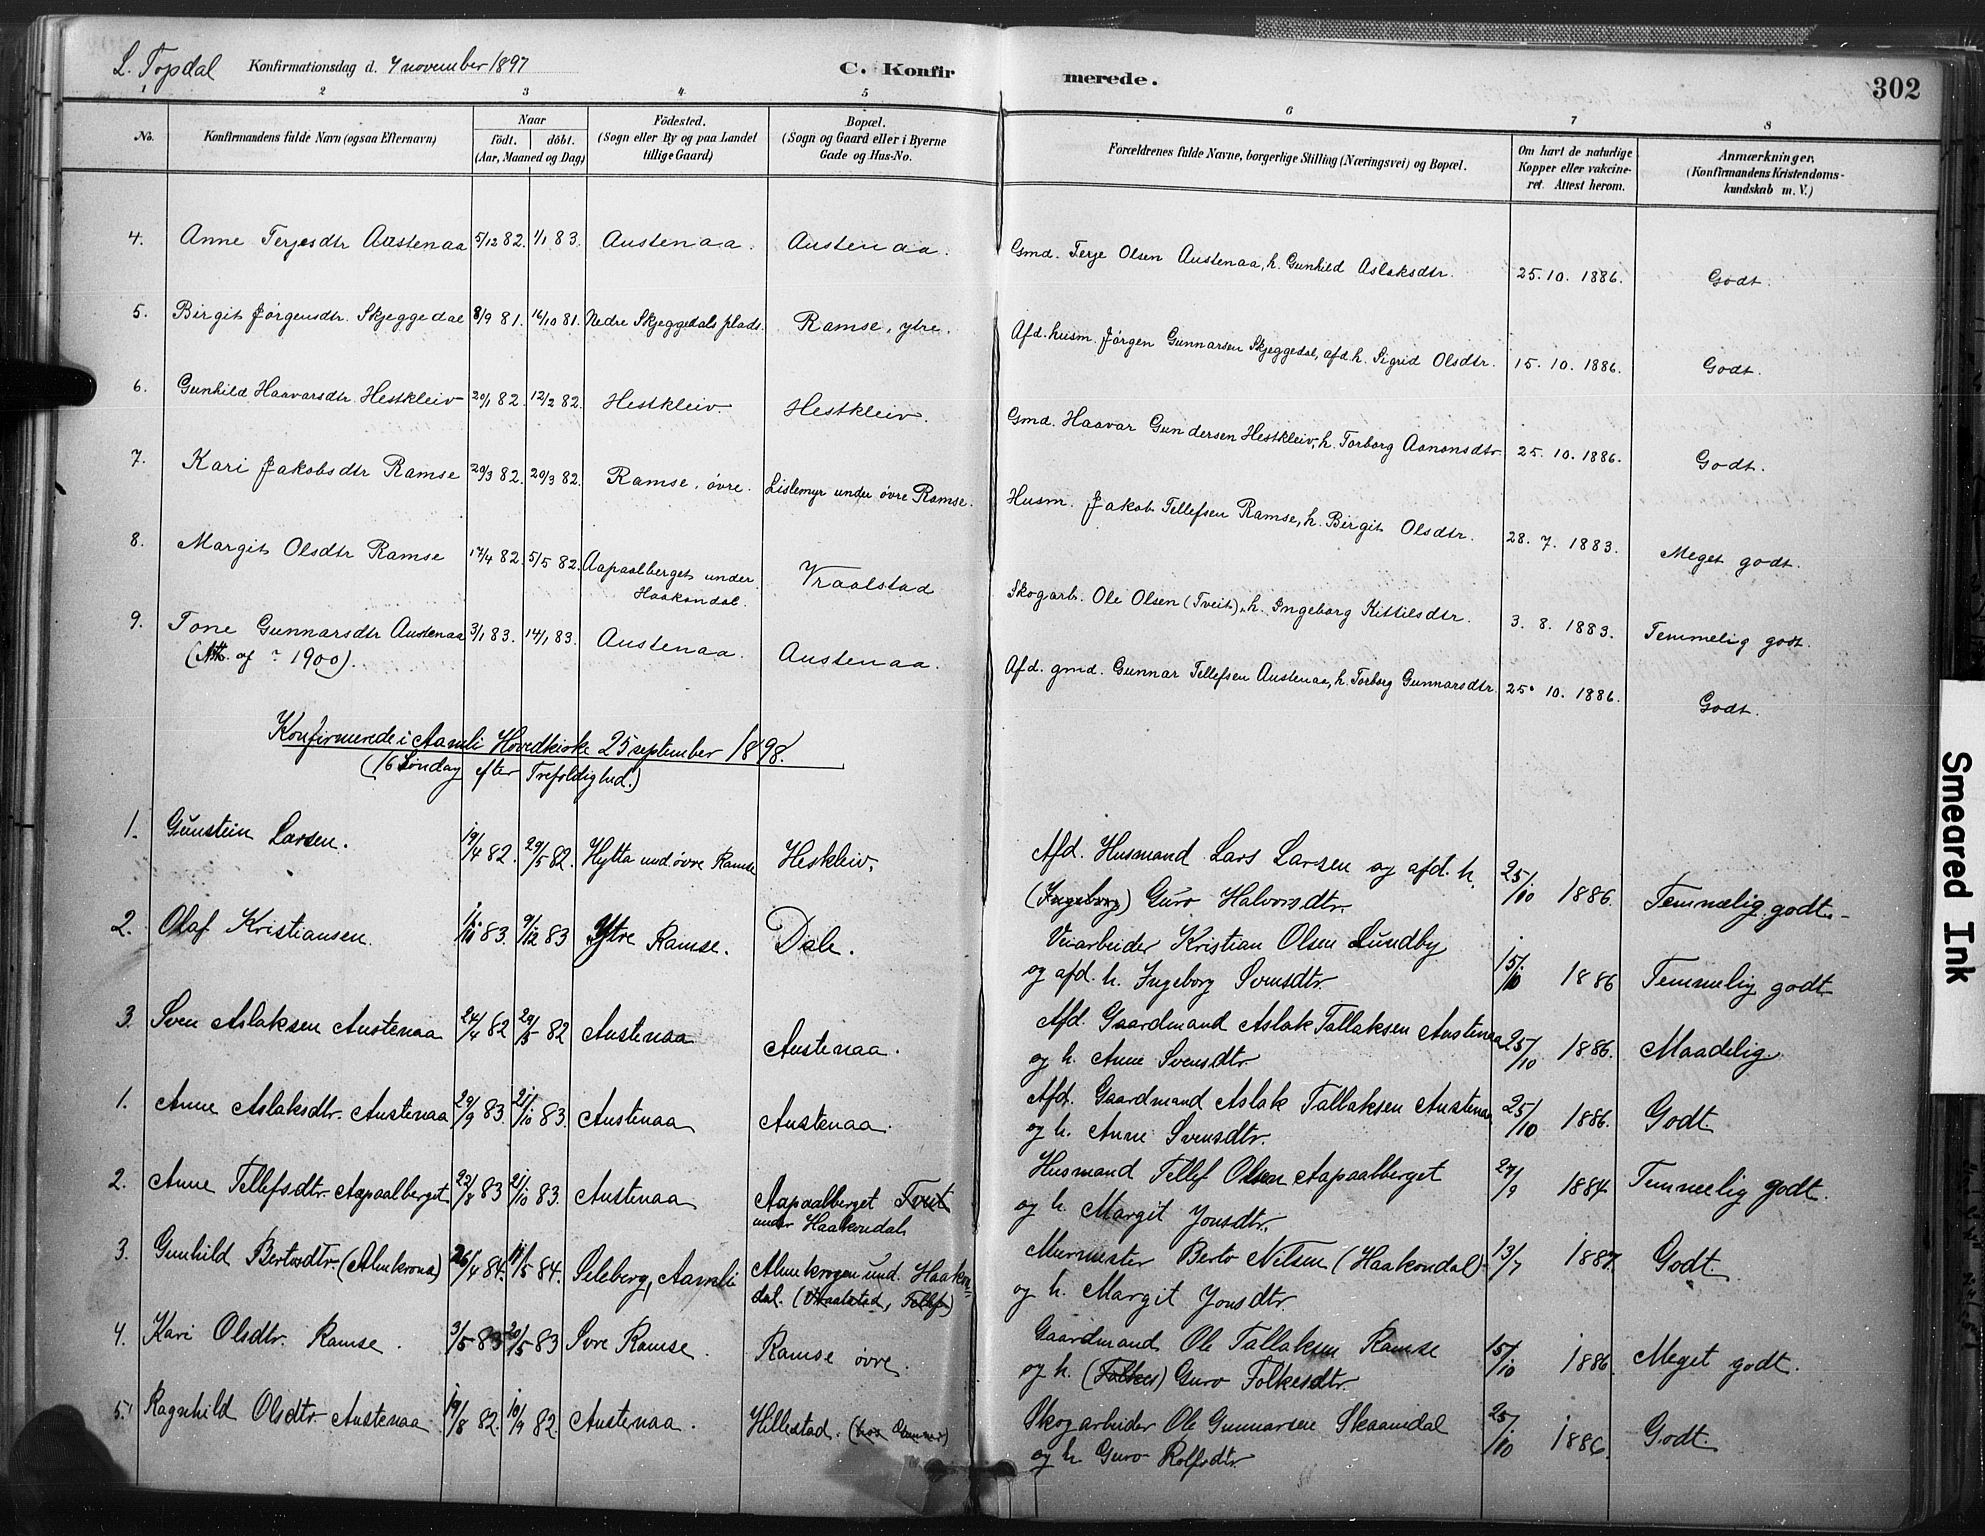 L. Topdal Konfirmationsdag d. 7 november 1897 C. Konfirmerede. 302
1 2 3 4 5 6 7 8
No. Konfirmandens fulde Navn (ogsaa Efternavn) Naar født. døbt. (Aar, Maaned og Dag) Fødested. (Sogn eller By og paa Landet tillige Gaard) Bopæl. (Sogn og Gaard eller i Byerne Gade og Hus-No. Forældrenes fulde Navne, borgerlige Stilling (Næringsvei) og Bopæl. Om havt de naturlige Kopper eller vakcineret. Attest herom. Anmærkninger. (Konfirmandens Kristendomskundskab m. V.)
4. Anne Terjesdtr Austenaa 5/12 82. 1/1 83. Austenaa. Austenaa. Gmd. Terje Olsen Austenaa, h. Gunhild Aslaksdtr. 25. 10. 1886. Godt.
5. Birgit Jørgensdtr. Skjeggedal 8/9 81. 16/10 81. Nedre Skjeggedals plads. Ramse, ytre. Afd. husm. Jørgen Gunnarsen Skjeggedal, afd. h. Sigrid Olsdtr. 15. 10. 1886. Godt.
6. Gunhild Haavarsdtr. Hestkleiv 20/1 82. 12/2 82. Hestkleiv. Hestkleiv. Gmd. Haavar Gundersen Hestkleiv, h. Torborg Aanonsdtr. 25. 10. 1886. Godt.
7. Kari Jakobsdtr Ramse 20/3 82. 29/3 82. Ramse, øvre. Lislemyr under øvre Ramse. Husm. Jakob Tellefsen Ramse, h. Birgit Olsdtr. 28. 7. 1883. Meget godt.
8. Margit Olsdtr Ramse 17/4 82. 5/5 82. Aapaalberget under Haakondal. Vraalstad Skogarb. Ole Olsen (Tveit), h. Ingeborg Kittilsdtr. 3. 8. 1883. Temmelig godt.
9. Tone Gunnarsdtr Austenaa 3/1 83. 14/1 83. Austenaa. Austenaa. Afd. gmd. Gunnar Tellefsen Austenaa, h. Torborg Gunnarsdtr. 25. 10. 1886. Godt.
(Att. af 1900).
Konfirmerede i Aamli Hovedkirke 25 september 1898.
(16 Søndag efter Trefoldighed.)
1. Gunstein Larsen. 19/4 82. 29/5 82. Hytta und. øvre Ramse Heskleiv. Afd. Husmand Lars Larsen og afd. h. (Ingeborg) Guro Halvorsdtr. 25/10 1886. Temmelig godt.
2. Olaf Kristiansen. 83. 9/12 83 Ytre Ramse. Dale. Veiarbeider Kristian Olsen Lundby og afd. h. Ingeborg Svensdtr. 15/10 1886 Temmelig godt
3. Sven Aslaksen Austenaa 24/4 82 29/5 82 Austenaa Austenaa. Afd. Gaardmand Aslak Tallaksen Austenaa og h. Anne Svensdtr. 25/10 1886. Maadelig.
1. Anne Aslaksdtr. Austenaa 29/9 83. 21/10 83. Austenaa Austenaa. Afd. Gaardmand Aslak Tallaksen Austenaa og h. Anne Svensdtr. 25/10 1886. Godt
2. Anne Tellefsdtr. Aapaalberget 22/8 83 21/10 83. Austenaa Aapaalberget Tveit under Haakondal Husmand Tellef Olsen Aapaalberget og h. Margit Jonsdtr. 27/9 1884 Temmelig godt.
3. Gunhild Bertosdtr. (Almkrona) 26/4 84. 11/5 84. Seleberg, Aamli Almekrogen und. Haakondal. (Vraalstad, Tellef) Murmester Berto Nilsen (Haakondal) og h. Margit Jonsdtr. 13/7 1887. Godt.
4. Kari Olsdtr. Ramse. 3/5 83 20/5 83 Øvre Ramse. Ramse øvre. Gaardmand Ole Tallaksen Ramse og h. (Folkes) Guro Folkesdtr. 15/10 1886 Meget godt.
5. Ragnhild Olsdtr Austenaa. 19/8 82. 10/9 82. Austenaa. Hillestad. (hos Gunnar) Skogarbeider Ole Gunnarsen Skaamdal og h Guro Rolfsdtr. 25/10 1886. Godt.
Smeared Ink